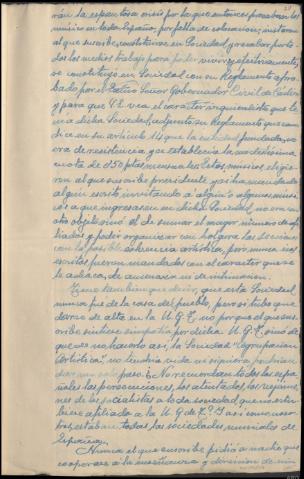 rán la espantosa crisis por la que entonces pasaban los
músicos en toda España, por falta de colocación; instaron
al que suscribe, constituirse en Sociedad, y recabar por to-
dos los medios trabajo para poder vivir; y efectivamente,
se constituyó en Sociedad con su Reglamento apro-
bado por el Excmo Señor Gobernador Civil de
y para que V.E. vea el carácter que te-
nía dicha Sociedad, adjunto su Reglamento que en
dice en su artículo 14 que la entidad fundada, no
era de resistencia y se establecía la modestísima
cuota de 0'50 ptas mensuales. Estos músicos eligie-
ron al que suscribe presidente y si ha mandado
algún escrito invitando a algún o algunos músi-
cos a que ingresasen en dicha Sociedad, no era con
otro objeto sinó el de sumar el mayor número de afi-
liados y poder organizar con holgura las secciones
con la posible solvencia artística, pero nunca esos
escritos fueron mandados con el carácter que se
le achaca, de amenaza ni de intimación.
Tengo también que decir, que esta Sociedad
nunca fué de la casa del pueblo, pero si hubo que
darse de alta en la U.G.T., no porque el que sus-
cribe sintiese simpatía por dicha U.G.T., sinó de
que de no hacerlo así, la Sociedad "Agrupación
Artística", no tendría vida ni siquiera podrían
dar un solo paso. ¿No recuerdan todos los espa-
ñoles las persecuciones, los atentados, los crímenes
de los socialistas a toda sociedad que no estu-
biese afiliada a la U.G. de T.? Y así como noso-
tros, estaban todas las sociedades musicales de
España.
Nunca el que suscribe pidió a nadie que
cooperase a la enseñanza y dirección de